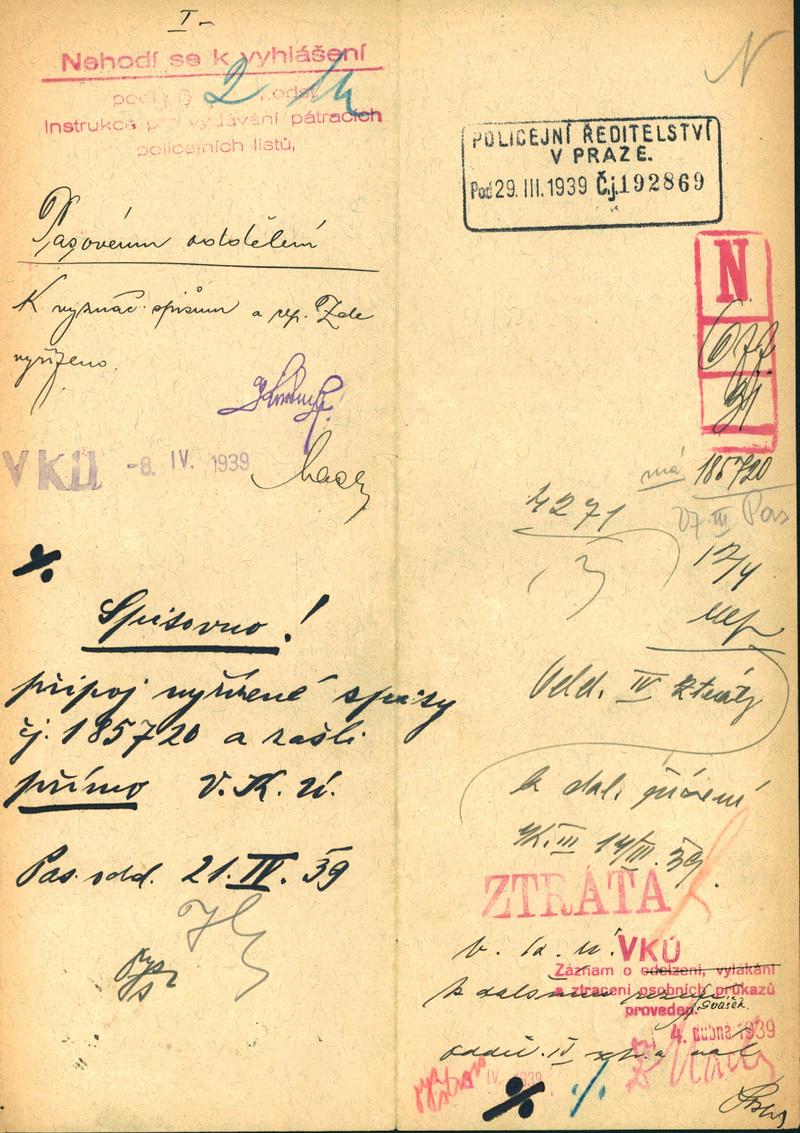 I-
Nehodí se k vyhlášení
2
Instrukce pro vydávání pátracích
policejních listů,
Pasovému oddělení
K vyznač. spisům a rep. Zde
vyřízeno.
VKÚ -8. IV. 1939
%
Spisovno!
připoj vyřízené spisy
čj. 185720 a zašli
přímo V. K. Ú.
Pas. odd. 21. IV. 39
N
POLICEJNÍ ŘEDITELSTVÍ
V PRAZE.
Pod 29. III. 1939 Čj. 192869
N
677
31
má 185720
27. III Pas
4271
3
12/4
Odd. IV ztráty
k dal. řízení
ZTRÁTA
VKÚ
Záznam o odcizení, vylákání
a ztracení osobních průkazů
proveden.
4. dubna 1939
k dalšímu
odděl. IV
IV. 1939
%
%